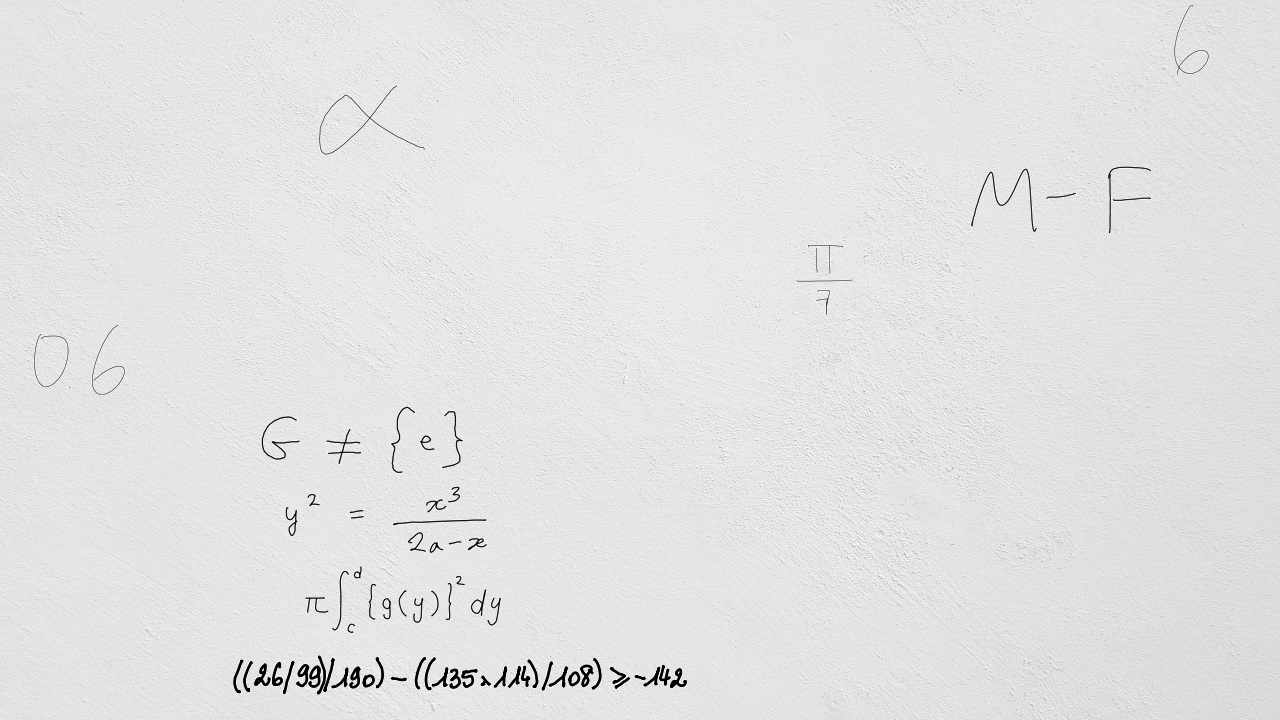 6
α
M - F
π/7
06
G ≠ {e}
y² = x³/(2a - x)
π∫_c^d {g(y)}² dy
((26/99)/190) - ((135×114)/108) ⩾ -142